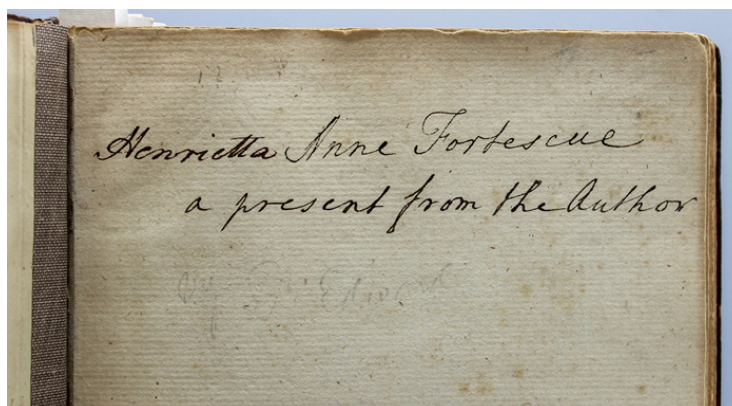 Henrietta Anne Fortescue
a present from the Author